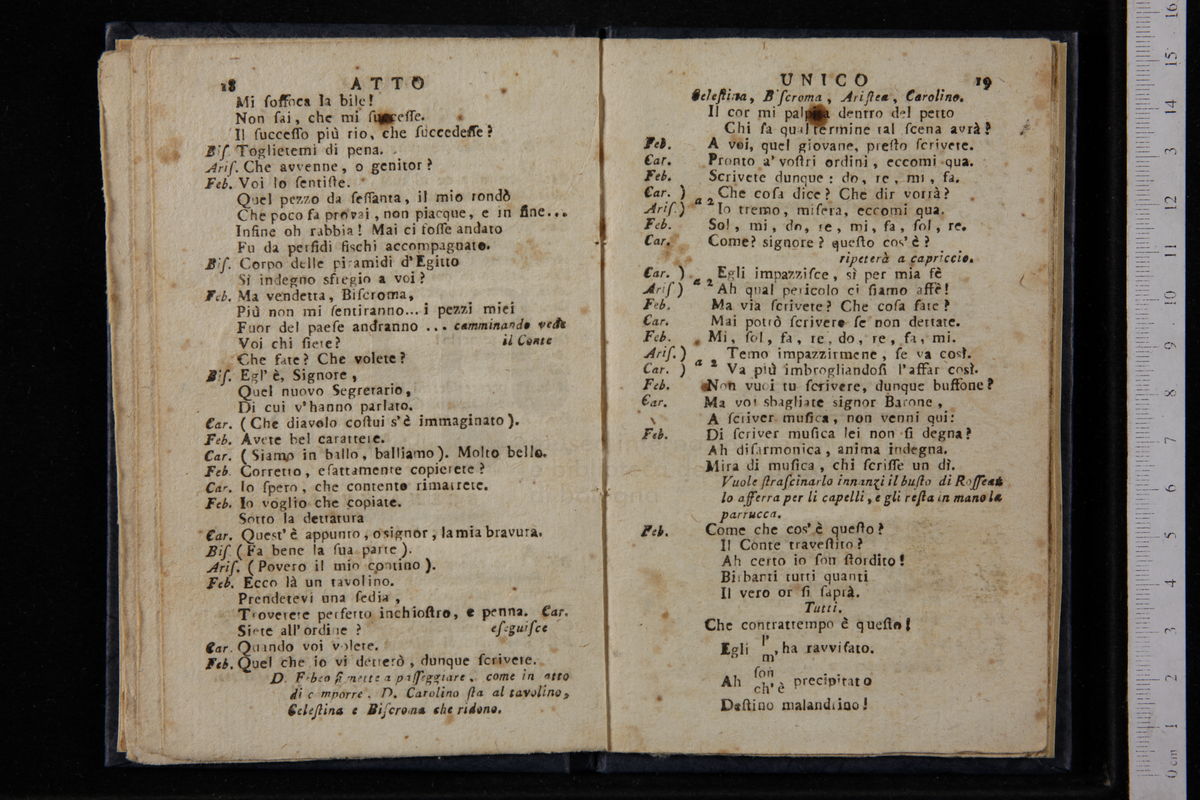 18 ATTO
Mi ſoffoca la bile!
Non ſai, che mi ſucceſſe.
Il ſucceſſo più rio, che ſuccedeſſe?
Biſ. Toglietemi di pena.
Ariſ. Che avvenne, o genitor?
Feb. Voi lo ſentiſte.
Quel pezzo da ſeſſanta, il mio rondò
Che poco fa provai, non piacque, e in fine...
Infine oh rabbia! Mai ci foſſe andato
Fu da perfidi fiſchi accompagnato.
Biſ. Corpo delle piramidi d'Egitto
Sì indegno sfregio a voi?
Feb. Ma vendetta, Biſcroma,
Più non mi ſentiranno... i pezzi miei
Fuor del paeſe andranno ... camminando vede
Voi chi ſiete? il Conte
Che fate? Che volete?
Biſ. Egl' è, Signore,
Quel nuovo Segretario,
Di cui v'hanno parlato.
Car. (Che diavolo coſtui s'è immaginato).
Feb. Avete bel carattere.
Car. (Siamo in ballo, balliamo). Molto bello.
Feb. Corretto, eſattamente copierete?
Car. Io ſpero, che contento rimarrete.
Feb. Io voglio che copiate.
Sotto la dettatura
Car. Queſt' è appunto, o signor, la mia bravura.
Biſ. (Fa bene la ſua parte).
Ariſ. (Povero il mio contino).
Feb. Ecco là un tavolino.
Prendetevi una ſedia,
Troverete perfetto inchioſtro, e penna. Car.
Siete all' ordine? eſeguiſce
Car. Quando voi volete.
Feb. Quel che io vi detterò, dunque ſcrivete.
D. Febeo ſi mette a paſſeggiare, come in atto
di comporre. D. Carolino ſta al tavolino,
Celeſtina e Biſcroma che ridono.
UNICO 19
Celeſtina, Biſcroma, Ariſtea, Carolino.
Il cor mi palpita dentro del petto
Chi ſa qual termine tal ſcena avrà?
Feb. A voi, quel giovane, preſto ſcrivete.
Car. Pronto a' voſtri ordini, eccomi qua.
Feb. Scrivete dunque: do, re, mi, fa.
Car. ) a 2 Che coſa dice? Che dir vorrà?
Ariſ.) Io tremo, miſera, eccomi qua.
Feb. Sol, mi, do, re, mi, fa, ſol, re.
Car. Come? signore? queſto cos' è?
ripeterà a capriccio.
Car. ) a 2 Egli impazziſce, sì per mia fè
Ariſ ) Ah qual pericolo ci ſiamo affè!
Feb. Ma via ſcrivete? Che coſa fate?
Car. Mai potrò ſcrivere ſe non dettate.
Feb. Mi, ſol, fa, re, do, re, fa, mi.
Ariſ. ) a 2 Temo impazzirmene, ſe va così.
Car. ) Va più imbrogliandoſi l'affar così.
Feb. Non vuoi tu ſcrivere, dunque buffone?
Car. Ma voi sbagliate signor Barone,
A ſcriver muſica, non venni qui:
Feb. Di ſcriver muſica lei non ſi degna?
Ah diſarmonica, anima indegna.
Mira di muſica, chi ſcriſſe un dì.
Vuole ſtraſcinarlo innanzi il buſto di Roſſeau
lo afferra per li capelli, e gli reſta in mano la
parrucca.
Feb. Come che cos' è queſto?
Il Conte traveſtito?
Ah certo io ſon ſtordito!
Birbanti tutti quanti
Il vero or ſi ſaprà.
Tutti.
Che contrattempo è queſto!
Egli l' m', ha ravviſato.
Ah ſon ch'è precipitato
Deſtino malandrino!
0 cm 1 2 3 4 5 6 7 8 9 10 11 12 13 14 15 16